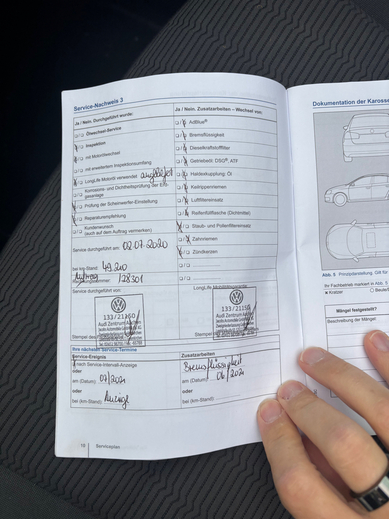 Service-Nachweis 3
Ja / Nein. Durchgeführt wurde:
Ölwechsel-Service
Inspektion
mit Motorölwechsel
mit erweitertem Inspektionsumfang
LongLife Motoröl verwendet
Korrosions- und Dichtheitsprüfung der Erdgasanlage
Prüfung der Scheinwerfer-Einstellung
Reparaturempfehlung
Kundenwunsch
(auch auf dem Auftrag vermerken)
Service durchgeführt am: 02.07.2020
bei km-Stand: 49.200
128301
Service durchgeführt von:
133/21160
Audi Zentrum
Stempel des
Ja / Nein. Zusatzarbeiten – Wechsel von:
AdBlue®
Bremsflüssigkeit
Dieselkraftstofffilter
Getriebeöl: DSG®, ATF
Haldexkupplung: Öl
Keilrippenriemen
Luftfiltereinsatz
Reifenfüllflasche (Dichtmittel)
Staub- und Pollenfiltereinsatz
Zahnriemen
Zündkerzen
LongLife Mobilitätsgarantie
Audi Zentrum
Stempel
Ihre nächsten Service-Termine
Service-Ereignis
nach Service-Intervall-Anzeige
oder
am (Datum): 07/2021
oder
bei (km-Stand): Anzeige
Zusatzarbeiten:
Bremsflüssigkeit
am (Datum): 06/2021
oder
bei (km-Stand):
18 Serviceplan
Dokumentation der Karosse
Abb. 5 Prinzipdarstellung. Gilt für
Kratzer
Mängel festgestellt?
Beschreibung der Mängel: